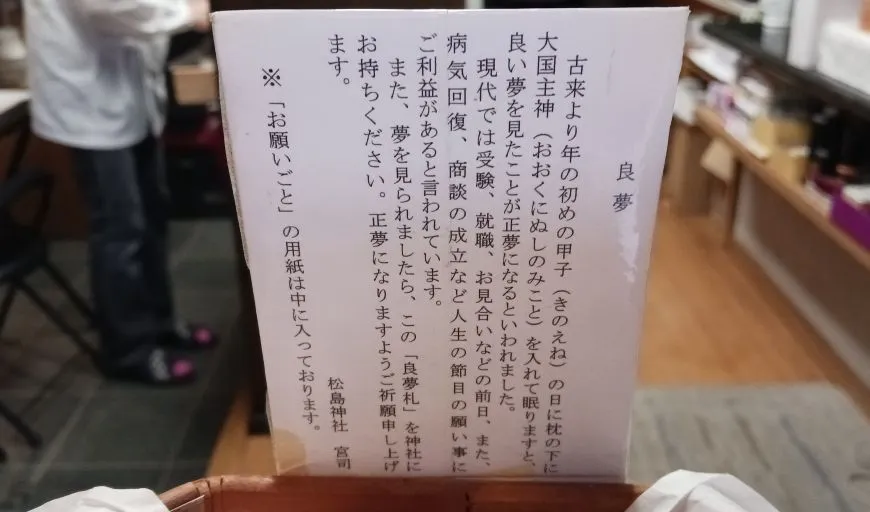 良夢
古来より年の初めの甲子（きのえね）の日に枕の下に
大国主神（おおくにぬしのみこと）を入れて眠りますと、
良い夢を見たことが正夢になるといわれました。
現代では受験、就職、お見合いなどの前日、また、
病気回復、商談の成立など人生の節目の願い事に
ご利益があると言われています。
また、夢を見られましたら、この「良夢札」を神社に
お持ちください。正夢になりますようご祈願申し上げ
ます。
松島神社　宮司
※「お願いごと」の用紙は中に入っております。